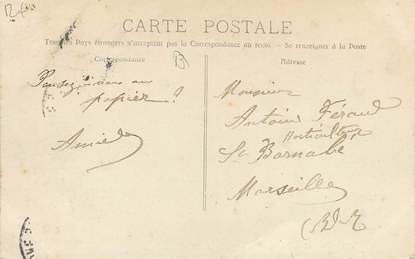 CARTE POSTALE
Tous les Pays étrangers n'acceptent pas la Correspondance au recto. - Se renseigner à la Poste
Correspondance
Adresse
Pensez au
papier?
Monsieur
Antoine Féraud
Horticulteur
St Barnabé
Marseille
(B.d.R